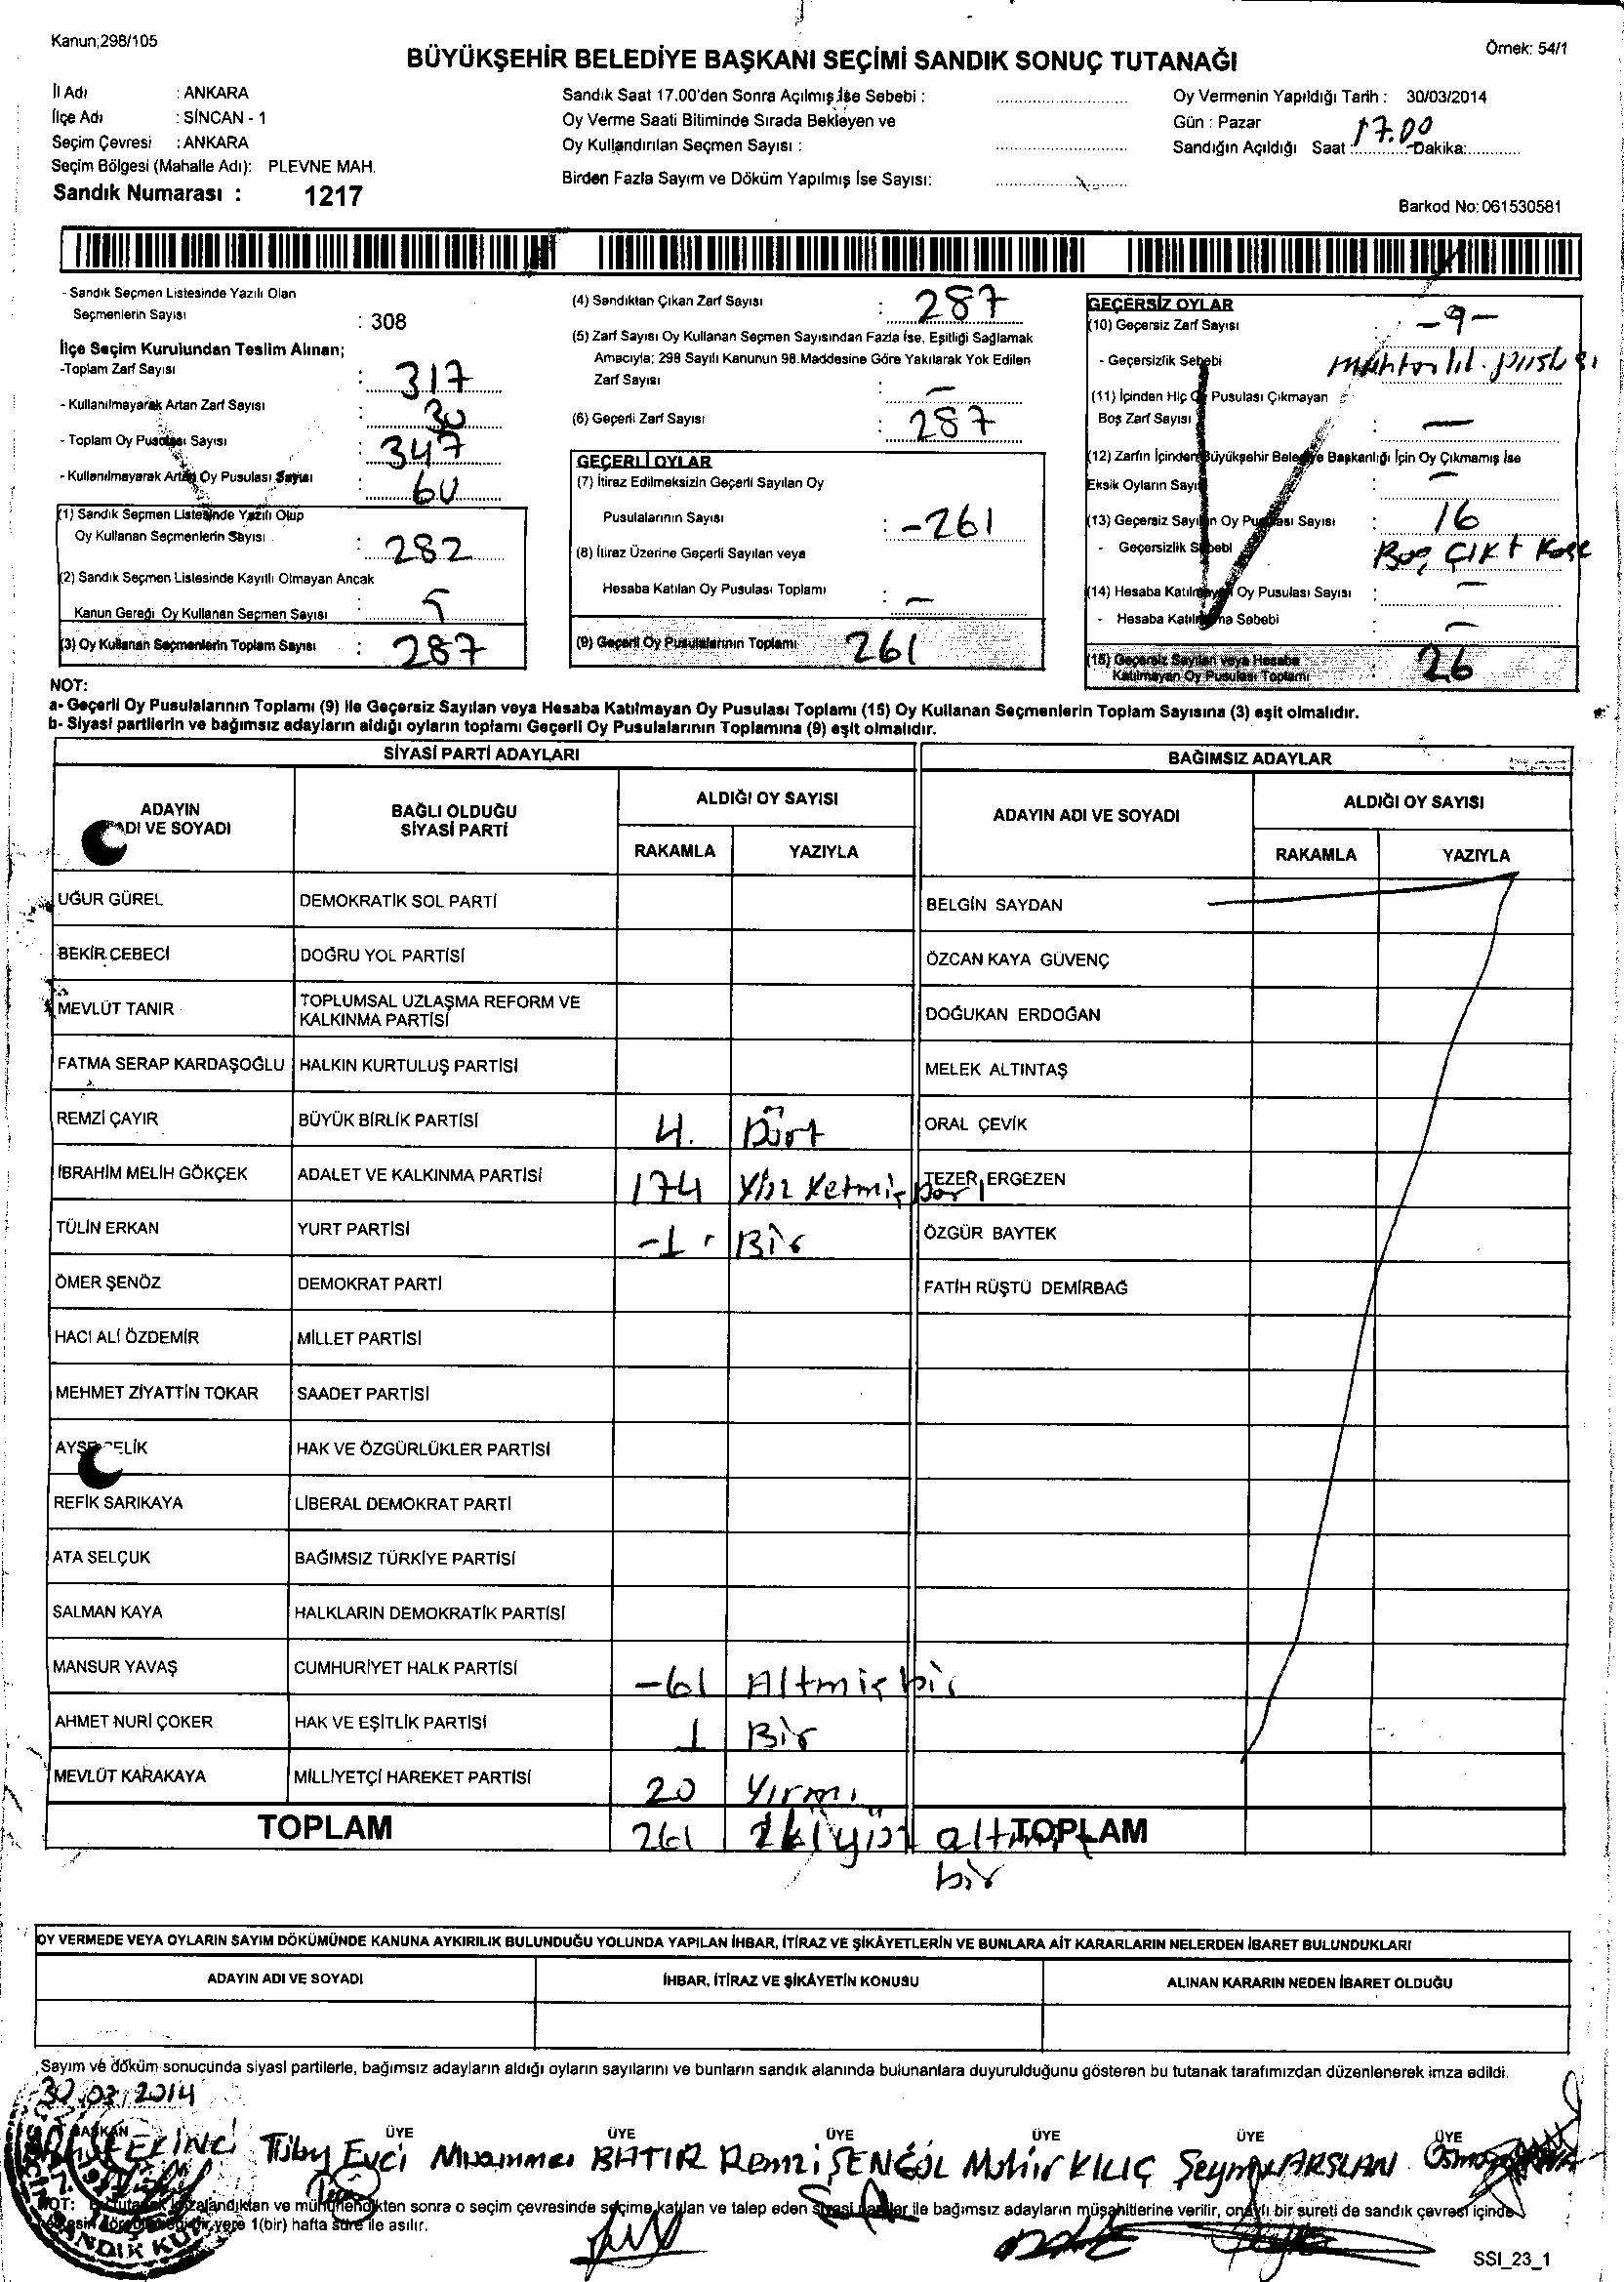 Kanun;298/105
Örnek: 54/1
BÜYÜKŞEHİR BELEDİYE BAŞKANI SEÇİMİ SANDIK SONUÇ TUTANAĞI
İl Adı : ANKARA
İlçe Adı : SİNCAN - 1
Seçim Çevresi : ANKARA
Seçim Bölgesi (Mahalle Adı): PLEVNE MAH.
Sandık Numarası : 1217
Sandık Saat 17.00'den Sonra Açılmış İse Sebebi :
Oy Verme Saati Bitiminde Sırada Bekleyen ve
Oy Kullandırılan Seçmen Sayısı :
Birden Fazla Sayım ve Döküm Yapılmış İse Sayısı:
Oy Vermenin Yapıldığı Tarih : 30/03/2014
Gün : Pazar
Sandığın Açıldığı Saat : 17.00 Dakika:
Barkod No: 061530581
- Sandık Seçmen Listesinde Yazılı Olan
Seçmenlerin Sayısı : 308
İlçe Seçim Kurulundan Teslim Alınan;
-Toplam Zarf Sayısı : 317
- Kullanılmayarak Artan Zarf Sayısı : 30
- Toplam Oy Pusulası Sayısı : 347
- Kullanılmayarak Artan Oy Pusulası Sayısı : 60
(1) Sandık Seçmen Listesinde Yazılı Olup
Oy Kullanan Seçmenlerin Sayısı : 282
(2) Sandık Seçmen Listesinde Kayıtlı Olmayan Ancak
Kanun Gereği Oy Kullanan Seçmen Sayısı : 5
(3) Oy Kullanan Seçmenlerin Toplam Sayısı : 287
(4) Sandıktan Çıkan Zarf Sayısı : 287
(5) Zarf Sayısı Oy Kullanan Seçmen Sayısından Fazla İse, Eşitliği Sağlamak
Amacıyla; 298 Sayılı Kanunun 98.Maddesine Göre Yakılarak Yok Edilen
Zarf Sayısı : –
(6) Geçerli Zarf Sayısı : 287
GEÇERLİ OYLAR
(7) İtiraz Edilmeksizin Geçerli Sayılan Oy
Pusulalarının Sayısı : -261
(8) İtiraz Üzerine Geçerli Sayılan veya
Hesaba Katılan Oy Pusulası Toplamı : –
(9) Geçerli Oy Pusulalarının Toplamı 261
GEÇERSİZ OYLAR
(10) Geçersiz Zarf Sayısı : -9-
- Geçersizlik Sebebi
(11) İçinden Hiç Oy Pusulası Çıkmayan
Boş Zarf Sayısı : –
(12) Zarfın İçinden Büyükşehir Belediye Başkanlığı İçin Oy Çıkmamış İse
Eksik Oyların Sayısı : –
(13) Geçersiz Sayılan Oy Pusulası Sayısı : 16
- Geçersizlik Sebebi Boş Çıktı
(14) Hesaba Katılmayan Oy Pusulası Sayısı : –
- Hesaba Katılmama Sebebi : –
(15) Geçersiz Sayılan veya Hesaba
Katılmayan Oy Pusulası Toplamı : 26
NOT:
a- Geçerli Oy Pusulalarının Toplamı (9) ile Geçersiz Sayılan veya Hesaba Katılmayan Oy Pusulası Toplamı (15) Oy Kullanan Seçmenlerin Toplam Sayısına (3) eşit olmalıdır.
b- Siyasi partilerin ve bağımsız adayların aldığı oyların toplamı Geçerli Oy Pusulalarının Toplamına (9) eşit olmalıdır.
SİYASİ PARTİ ADAYLARI
BAĞIMSIZ ADAYLAR
ADAYIN
ADI VE SOYADI
BAĞLI OLDUĞU
SİYASİ PARTİ
ALDIĞI OY SAYISI
RAKAMLA YAZIYLA
ADAYIN ADI VE SOYADI
ALDIĞI OY SAYISI
RAKAMLA YAZIYLA
UĞUR GÜREL DEMOKRATİK SOL PARTİ BELGİN SAYDAN
BEKİR ÇEBECİ DOĞRU YOL PARTİSİ ÖZCAN KAYA GÜVENÇ
MEVLÜT TANIR TOPLUMSAL UZLAŞMA REFORM VE
KALKINMA PARTİSİ DOĞUKAN ERDOĞAN
FATMA SERAP KARDAŞOĞLU HALKIN KURTULUŞ PARTİSİ MELEK ALTINTAŞ
REMZİ ÇAYIR BÜYÜK BİRLİK PARTİSİ 4. Dört ORAL ÇEVİK
İBRAHİM MELİH GÖKÇEK ADALET VE KALKINMA PARTİSİ 174 Yüz Yetmiş Dört TEZER ERGEZEN
TÜLİN ERKAN YURT PARTİSİ -1 Bir ÖZGÜR BAYTEK
ÖMER ŞENÖZ DEMOKRAT PARTİ FATİH RÜŞTÜ DEMİRBAĞ
HACI ALİ ÖZDEMİR MİLLET PARTİSİ
MEHMET ZİYATTİN TOKAR SAADET PARTİSİ
AYŞE ÇELİK HAK VE ÖZGÜRLÜKLER PARTİSİ
REFİK SARIKAYA LİBERAL DEMOKRAT PARTİ
ATA SELÇUK BAĞIMSIZ TÜRKİYE PARTİSİ
SALMAN KAYA HALKLARIN DEMOKRATİK PARTİSİ
MANSUR YAVAŞ CUMHURİYET HALK PARTİSİ -61 Altmış bir
AHMET NURİ ÇOKER HAK VE EŞİTLİK PARTİSİ 1 Bir
MEVLÜT KARAKAYA MİLLİYETÇİ HAREKET PARTİSİ 20 Yirmi
TOPLAM 261 ikiyüz altmış bir TOPLAM
OY VERMEDE VEYA OYLARIN SAYIM DÖKÜMÜNDE KANUNA AYKIRILIK BULUNDUĞU YOLUNDA YAPILAN İHBAR, İTİRAZ VE ŞİKÂYETLERİN VE BUNLARA AİT KARARLARIN NELERDEN İBARET BULUNDUKLARI
ADAYIN ADI VE SOYADI İHBAR, İTİRAZ VE ŞİKÂYETİN KONUSU ALINAN KARARIN NEDEN İBARET OLDUĞU
Sayım ve döküm sonucunda siyasi partilerle, bağımsız adayların aldığı oyların sayılarını ve bunların sandık alanında bulunanlara duyurulduğunu gösteren bu tutanak tarafımızdan düzenlenerek imza edildi.
30.03.2014
BAŞKAN ÜYE ÜYE ÜYE ÜYE ÜYE ÜYE
EKİNCİ Tülay Evci Muammer BATIR Remzi ŞENGÖL Münir KILIÇ Şeyma ARSLAN
NOT: Bu tutanak imzalandıktan ve mühürlendikten sonra o seçim çevresinde seçime katılan ve talep eden siyasi partiler ile bağımsız adayların müşahitlerine verilir, onaylı bir sureti de sandık çevresi içinde
yere 1(bir) hafta süre ile asılır.
SSI_23_1